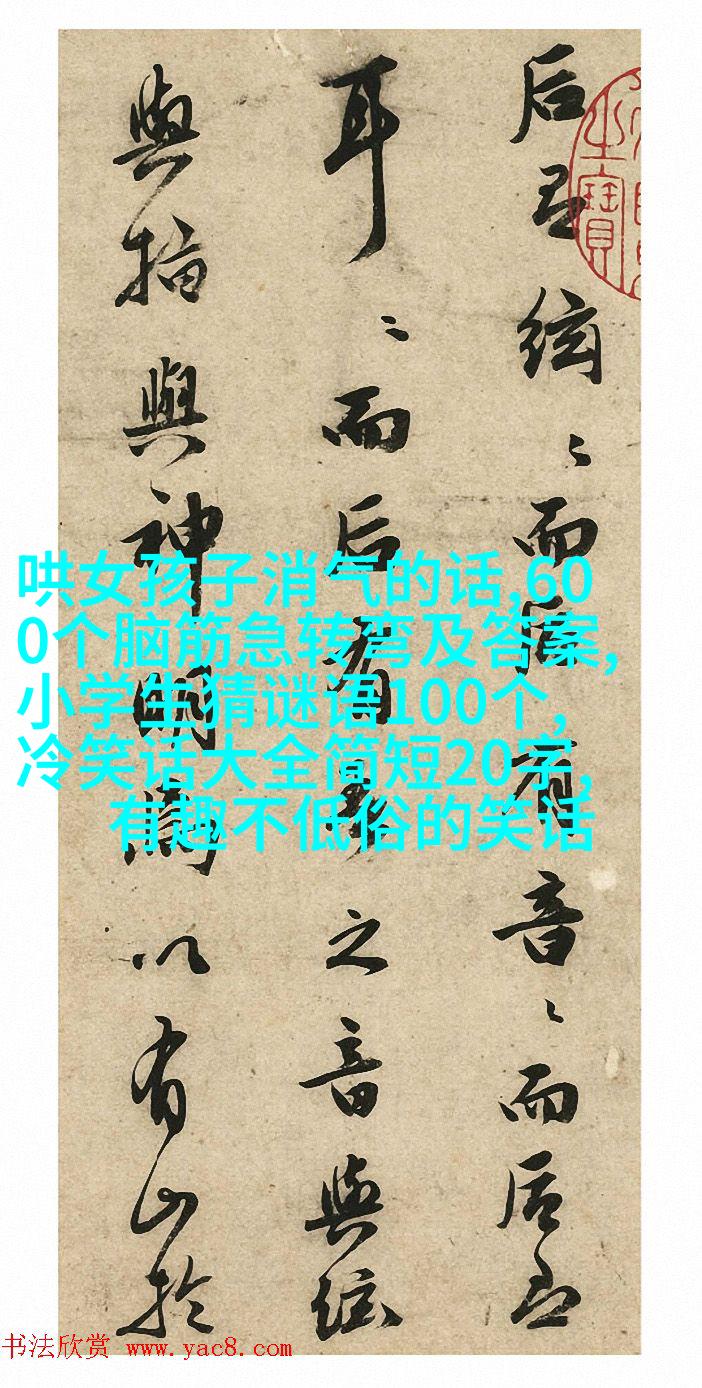 后絃〻而后有音〻而后
耳〻而后有之音與絃
與指與神明以有於
哄女孩子消气的话,60
0个脑筋急转弯及答案,
小学生猜谜语100个,
冷笑话大全简短20字,
有趣不低俗的笑话
书法欣赏 www.yac8.com